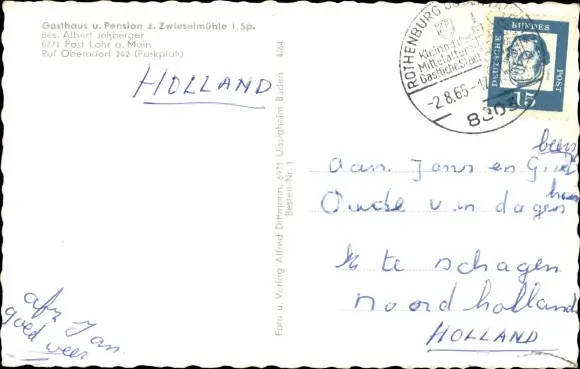 Gasthaus u. Pension z. Zwieselmühle i. Sp.
Bes. Albert Jehberger
8771 Post Lohr a. Main
Ruf Oberndorf 242 (Parkplatz)
HOLLAND
ROTHENBURG OB DER TAUBER
Kleinod
Mittelalters
Gastliche Stadt
-2.8.65-
8803
DEUTSCHE BUNDES POST
15
Foto u. Verlag Alfred Dittmann, 6971 Uissigheim Baden 4/64
Bestell-Nr. 1
Aan Jans en
Oude van dagen
te schagen
noord holland
HOLLAND
afz Jan
goed weer